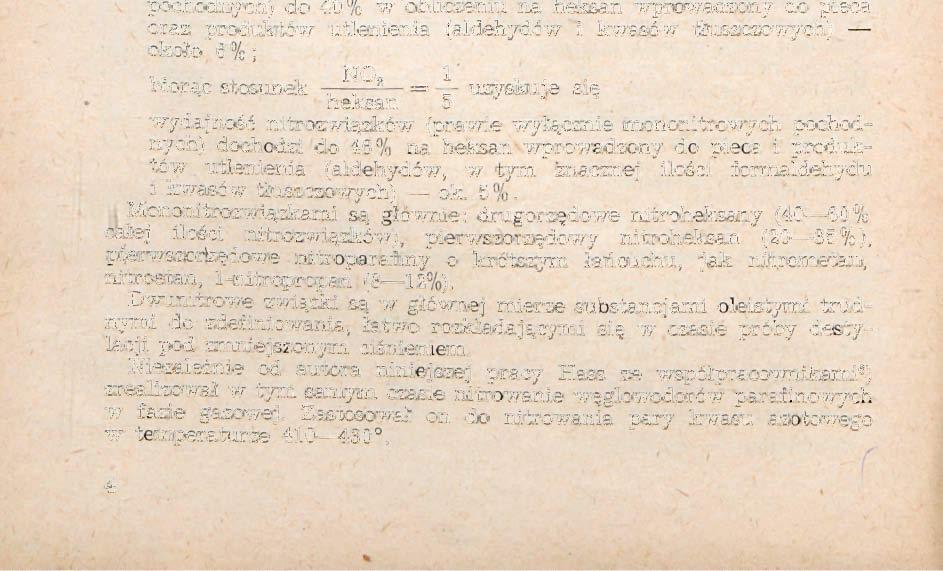 pochodnych) do 40% w obliczeniu na heksan wprowadzony do pieca
oraz produktów utlenienia (aldehydów i kwasów tłuszczowych) —
około 6%;
biorąc stosunek NO₂/heksan = 1/5 uzyskuje się
wydajność nitrozwiązków (prawie wyłącznie mononitrowych pochod-
nych) dochodzi do 48% na heksan wprowadzony do pieca i produk-
tów utlenienia (aldehydów, w tym znacznej ilości formaldehydu
i kwasów tłuszczowych) — ok. 5%.
Mononitrozwiązkami są głównie: drugorzędowe nitroheksany (40—60%
całej ilości nitrozwiązków), pierwszorzędowy nitroheksan (20—35%),
pierwszorzędowe nitroparafiny o krótszym łańcuchu, jak nitrometan,
nitroetan, 1-nitropropan (8—12%).
Dwunitrowe związki są w głównej mierze substancjami oleistymi trud-
nymi do zdefiniowania, łatwo rozkładającymi się w czasie próby desty-
lacji pod zmniejszonym ciśnieniem.
Niezależnie od autora niniejszej pracy Hass ze współpracownikami⁶)
zrealizował w tym samym czasie nitrowanie węglowodorów parafinowych
w fazie gazowej. Zastosował on do nitrowania pary kwasu azotowego
w temperaturze 410—430°.
4